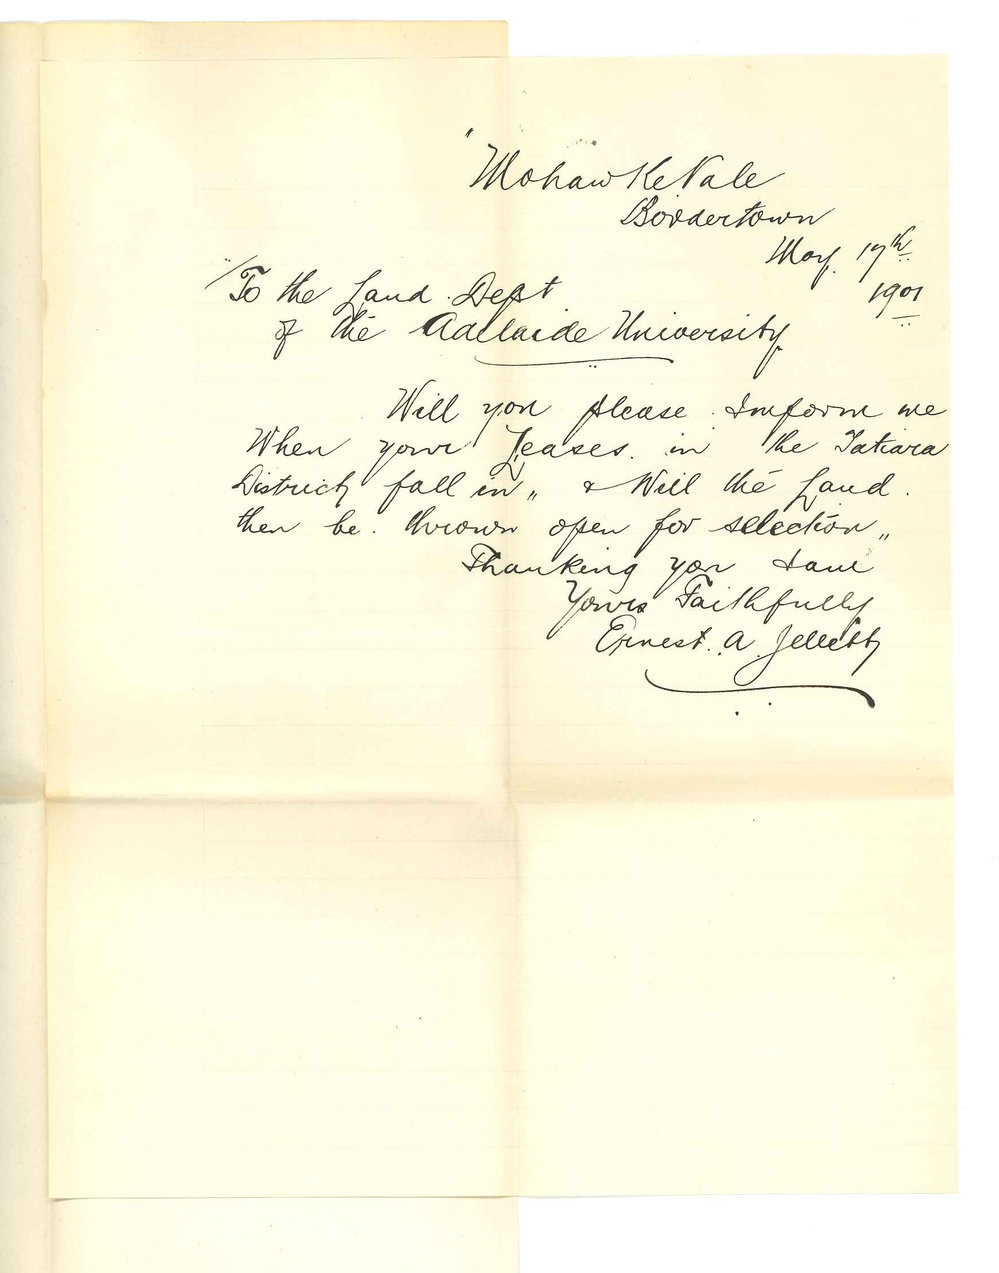 "Mohawke Vale
Bordertown
May. 17th
1901
"To the Land Dept
of the Adelaide University
Will you please. Imform me
When your Leases. in the Tatiara
District fall in,, & Will the Land.
then be. thrown open for selection,,
Thanking you I am
Yours Faithfully
Ernest. A. Jellett